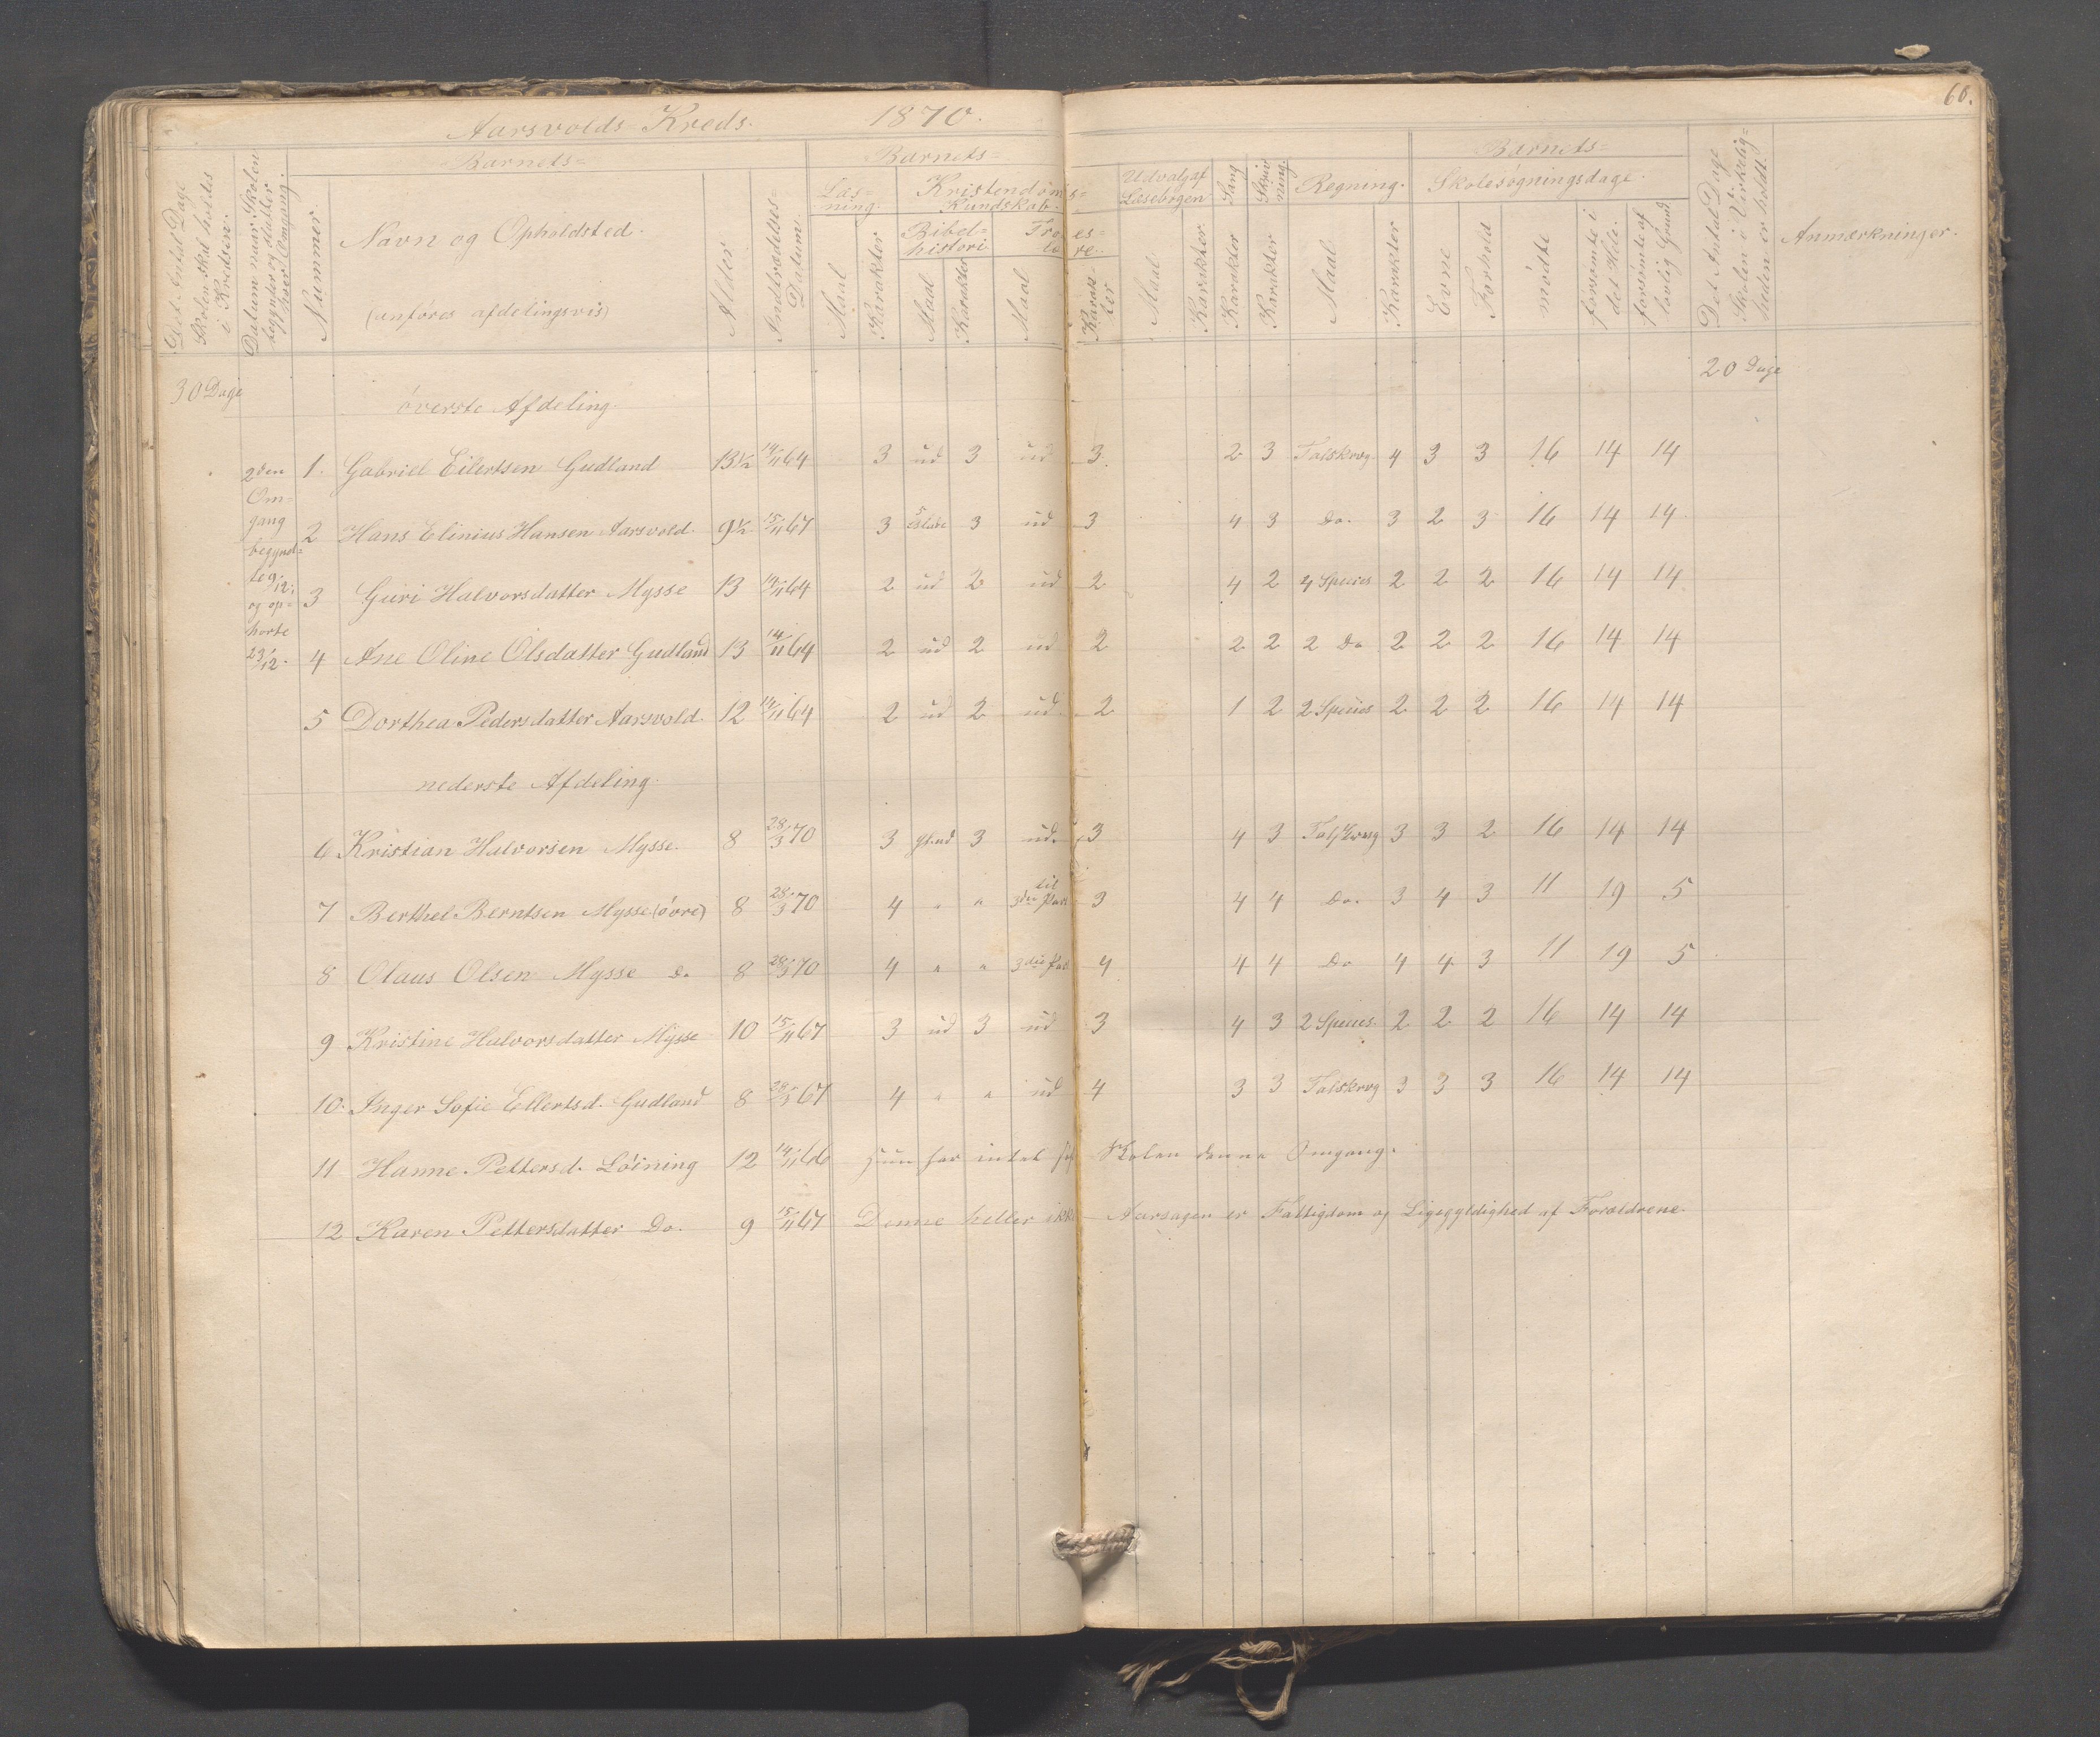 60.
Aarsvolds Kreds. 1870.
Barnets= Barnets= Barnets=
Det Antal Dage Skolen skal holdes i Kredsen.
Datum naar Skolen begynder og slutter hver Omgang.
Nummer.
Navn og Opholdsted.
(anføres afdelingsvis)
Alder
Indtrædelses= Datum.
Læs= ning. Maal Karakter
Kristendoms= Kundskab.
Bibel= historie Maal Karakter
Troes= lære. Maal Karak ter
Udvalg af Læsebogen Maal Karakter
Sang Karakter
Skriv ning. Karakter
Regning. Maal Karakter
Evne
Forhold
Skolesøgningsdage.
mødte
forsømte i det Hele.
forsømte af lovlig Grund
Det Antal Dage Skolen i Virkelig= heden er holdt.
Anmærkninger.
30 Dage 20 Dage
øverste Afdeling.
2den Om= gang begynd= te 9/12. og op= hørte 23/12.
1. Gabriel Eilertsen Gudland 13½ 14/11 64 3 ud 3 ud 3. 2 3 Talskrvg 4 3 3 16 14 14
2 Hans Elinius Hansen Aarsvold. 9½ 15/11 67 3 3 ud 3 4 3 Do. 3 2 3 16 14 14
3 Guri Halvorsdatter Mysse 13 14/11 64 2 ud 2 ud 2 4 2 4 Species 2 2 2 16 14 14
4 Ane Oline Olsdatter Gudland 13 14/11 64 2 ud 2 ud 2 2 2 2 Do 2 2 2 16 14 14
5 Dorthea Pedersdatter Aarsvold. 12 14/11 64 2 ud 2 ud 2 1 2 2 Species 2 2 2 16 14 14
nederste Afdeling.
6 Kristian Halvorsen Mysse. 8 28/3 70 3 3 ud. 3 4 3 Talskrvg 3 3 2 16 14 14
7 Berthel Berntsen Mysse (øvre) 8 28/3 70 4 " " til 3die Part 3 4 4 Do. 3 4 3 11 19 5
8 Olaus Olsen Mysse do 8 28/3 70 4 " " 3die Part 4 4 4 Do 4 4 3 11 19 5
9 Kristine Halvorsdatter Mysse 10 15/11 67 3 ud 3 ud 3 4 3 2 Species. 2 2 2 16 14 14
10. Inger Sofie Ellertsd. Gudland 8 67 4 " " ud 4 3 3 Talskrvg 3 3 3 16 14 14
11 Hanne Pettersd. Løining 12 14/11 66 Hun har intet Skolen denne Omgang.
12 Karen Pettersdatter Do. 9 15/11 67 Denne heller ikke Aarsagen er Fattigdom og Ligegyldighed af Forældrene.